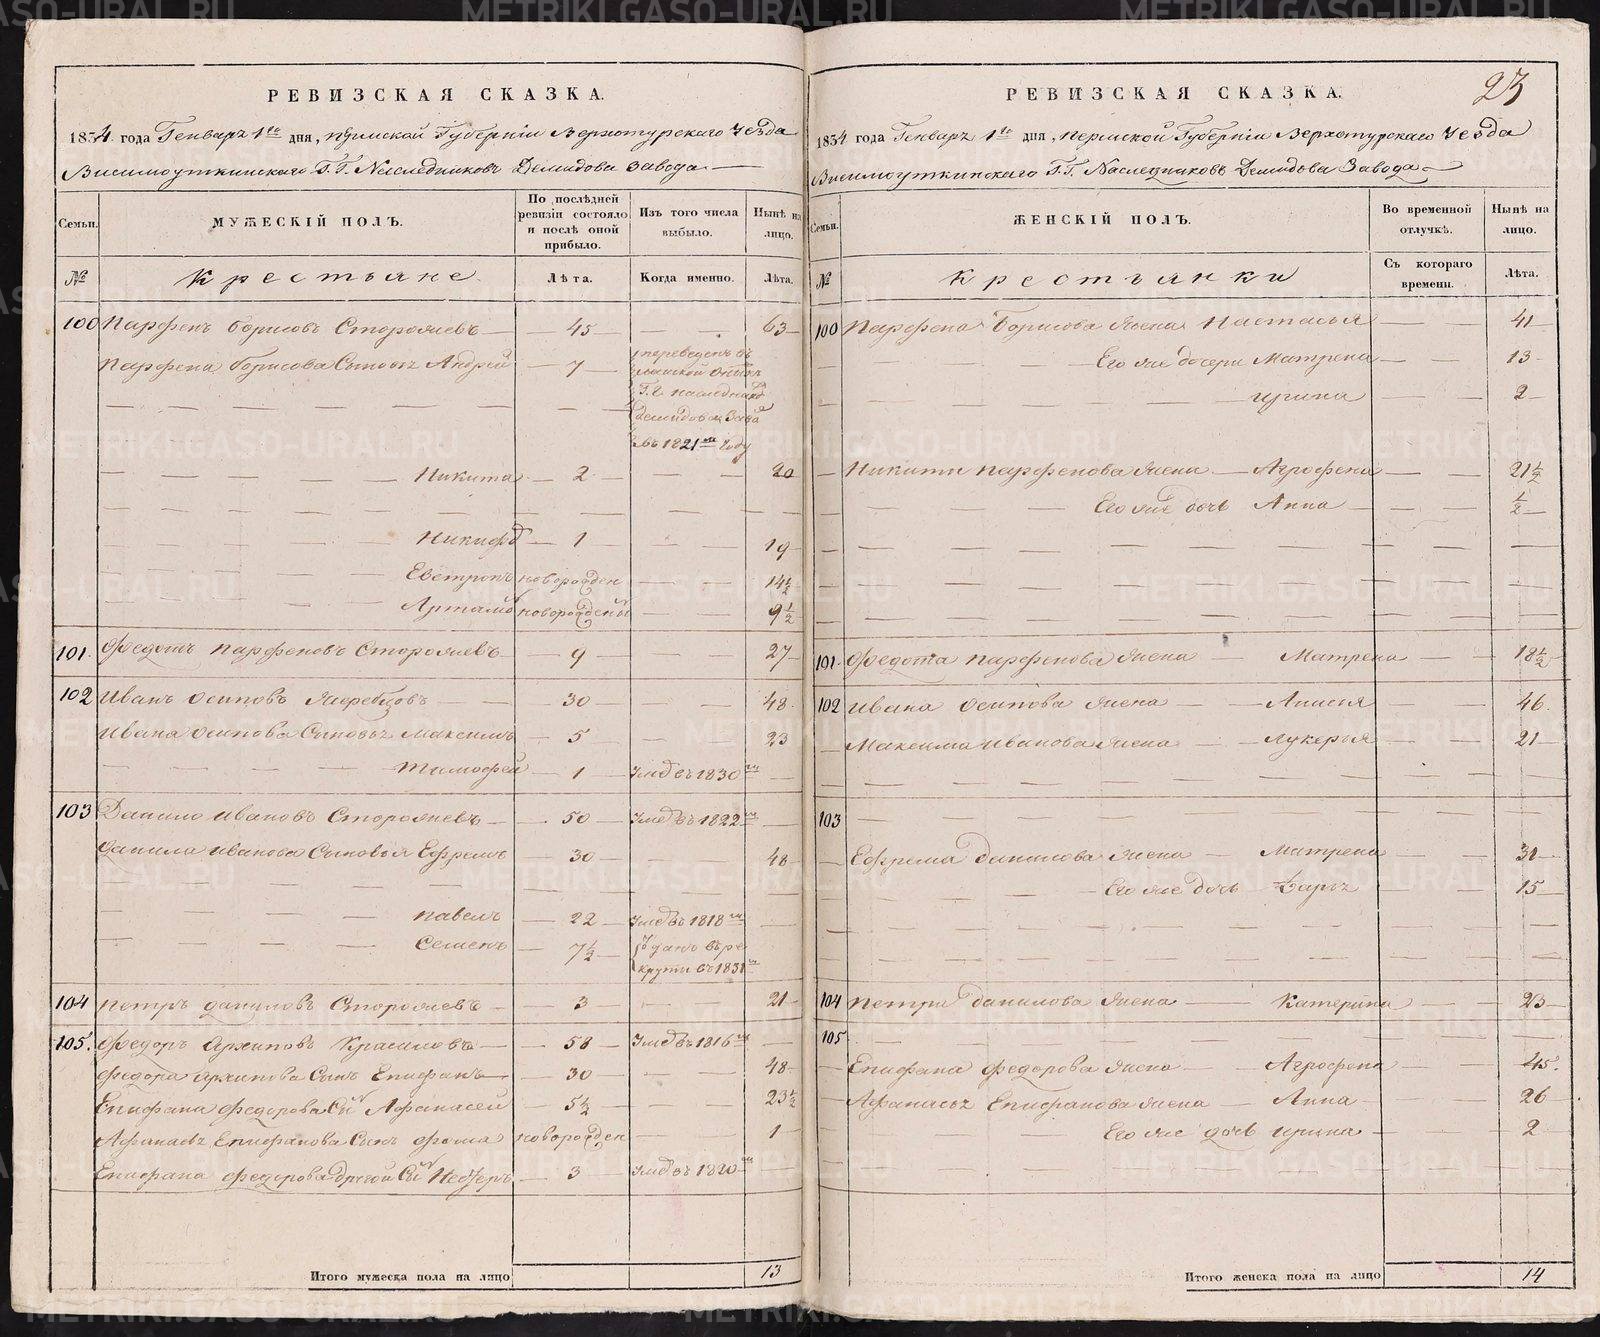 РЕВИЗСКАЯ СКАЗКА.
1834 года Генваря 1го дня, Пермской Губерніи Верхотурскаго Уезда
Висимоуткинскаго Г.Г. Наследниковъ Демидова Завода
Семьи.
МУЖЕСКІЙ ПОЛЪ.
По послѣдней ревизіи состояло и послѣ оной прибыло.
Изъ того числа выбыло.
Нынѣ на лицо.
№
Крестьяне
Лѣта.
Когда именно.
Лѣта.
100 Парфенъ Борисовъ Сторожевъ 45 63
Парфена Борисова Сыновья Андрей 7 переведенъ въ
Г.Г. наследник
Демидовых Заво
въ 1821м году
Никита 2 20
Никифо 1 19
Евстропъ новорожден 14½
Артамо новорожденый 9½
101 Федотъ Парфеновъ Сторожевъ 9 27
102 Иванъ Осиповъ Жеребцовъ 30 48
Ивана Осипова Сыновья Максимъ 5 23
Тимофей 1 Умре въ 1830м
103 Данило Ивановъ Сторожевъ 50 Умре въ 1822м
Данила Иванова Сыновья Ефремъ 30 48
Павелъ 22 Умре въ 1818м
Семенъ 7½ Отданъ въ ре
круты въ 1831м
104 Петръ Даниловъ Сторожевъ 3 21
105. Федоръ Архиповъ Красиловъ 58 Умре въ 1816м
Федора Архипова Сынъ Епифанъ 30 48
Епифана Федорова Сы Афанасей 5½ 23½
Афанасья Епифанова Сынъ Фома новорожден 1
Епифана Федорова другой Сы Несторъ 3 Умре въ 1820м
Итого мужеска пола на лицо 13
23
РЕВИЗСКАЯ СКАЗКА.
1834 года Генваря 1го дня, Пермской Губерніи Верхотурскаго Уезда
Висимоуткинскаго Г.Г. Наследниковъ Демидова Завода
Семьи.
ЖЕНСКІЙ ПОЛЪ.
Во временной отлучкѣ.
Нынѣ на лицо.
№
Крестьянки
Съ котораго времени.
Лѣта.
100 Парфена Борисова жена Настасья 41
Его же дочери Матрена 13
Ирина 2
Никиты Парфенова жена Агрофена 21½
Его же дочь Анна ½
101 Федота Парфенова жена Матрена 18½
102 Ивана Осипова жена Анисья 46
Максима Иванова жена Лукерья 21
103
Ефрема Данилова жена Матрена 31
Его же дочь Дарья 15
104 Петра Данилова жена Катерина 23
105
Епифана Федорова жена Агрофена 45.
Афанасья Епифанова жена Анна 26
Его же дочь Ирина 2
Итого женска пола на лицо 14
METRIKI.GASO-URAL.RU